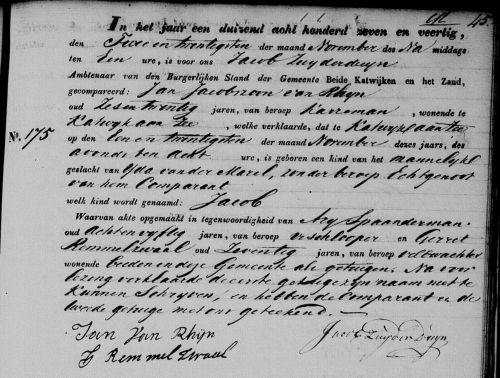 45
In het jaar een duizend acht honderd zeven en veertig,
den Twee en twintigsten der maand November des Na middags
ten Een ure, is voor ons Jacob Zuyderduyn
Ambtenaar van den Burgerlijken Stand der Gemeente Beide, Katwijken en het Zand,
gecompareerd: Jan Jacobszoon van Rhyn
oud Zes en twintig jaren, van beroep Karreman, wonende te
Katwyk aan Zee, welke verklaarde, dat te Katwyk aan Zee
No. 175
op den Een en twintigsten der maand November dezes jaars, des
avonds ten acht ure, is geboren een kind van het mannelyk
geslacht van Yda van der Marel, zonder beroep Echtgenoot
van hem Comparant
welk kind wordt genaamd: Jacob
Waarvan akte opgemaakt in tegenwoordigheid van Ary Spaanderman
oud Acht en vyftig jaren, van beroep en Gerret
Remmelzwaal oud Zeventig jaren, van beroep veldwachter
wonende beiden in deze Gemeente als getuigen. Na voor
lezing verklaarde de eerste getuige zyn naam niet te
kunnen Schryven, en hebben de Comparant en de
tweede getuige met ons geteekend
Jan Van Rhijn
G Remmelzwaal
Jacob Zuyderduyn